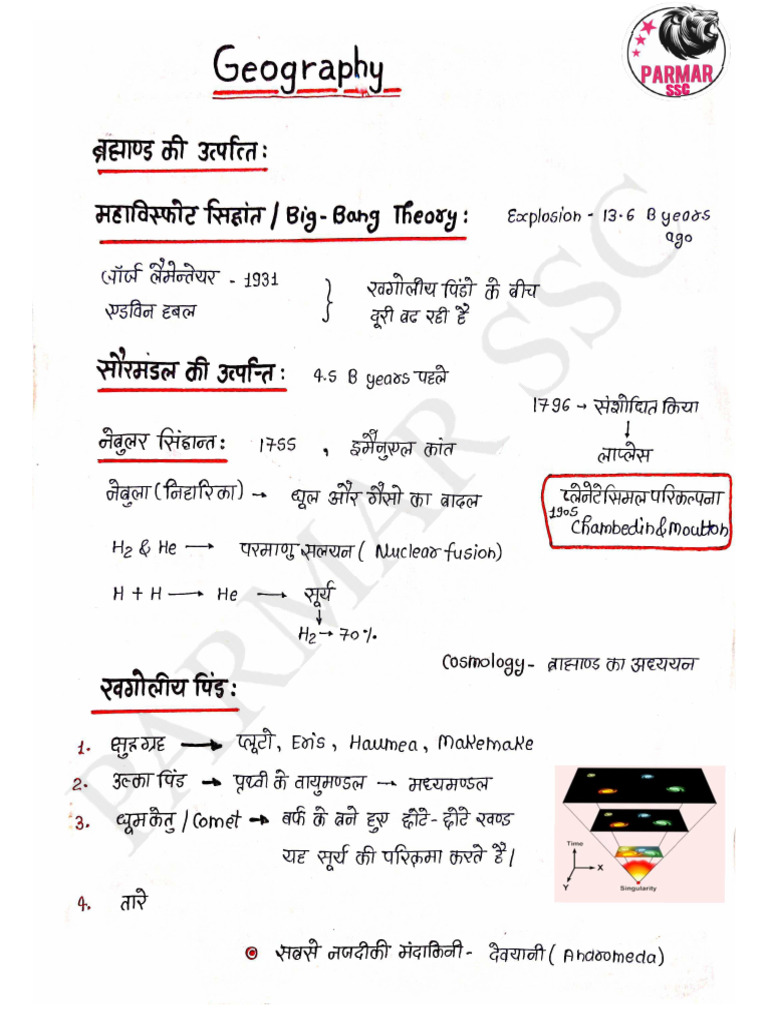 Geography
PARMAR
SSC
ब्रह्माण्ड की उत्पत्ति:
महाविस्फोट सिद्धांत / Big-Bang Theory: Explosion - 13.6 B years
ago
जॉर्ज लैमेन्तेयर - 1931
एडविन हबल
खगोलीय पिंडो के बीच
दूरी बढ रही है
सौरमंडल की उत्पत्ति: 4.5 B years पहले
1796 → संशोधित किया
लाप्लेस
नेबुलर सिद्धान्त: 1755 , इमैनुएल कांत
नेबुला (निहारिका) → धूल और गैसो का बादल
प्लेनेटेसिमल परिकल्पना
1905
Chambedin & Moulton
H2 & He → परमाणु सलयन ( Nuclear fusion)
H + H → He → सूर्य
H2 → 70%
Cosmology - ब्राह्माण्ड का अध्ययन
खगोलीय पिंड:
1. क्षुद्रग्रह → प्लूटो, Eris, Haumea, Makemake
2. उल्का पिंड → पृथ्वी के वायुमण्डल → मध्यमण्डल
3. धूमकेतु / Comet → बर्फ के बने हुए छोटे-छोटे खण्ड
यह सूर्य की परिक्रमा करते है।
Time
X
Y
Singularity
4. तारे
सबसे नजदीकी मंदाकिनी - देवयानी ( Andromeda)
PARMAR SSC